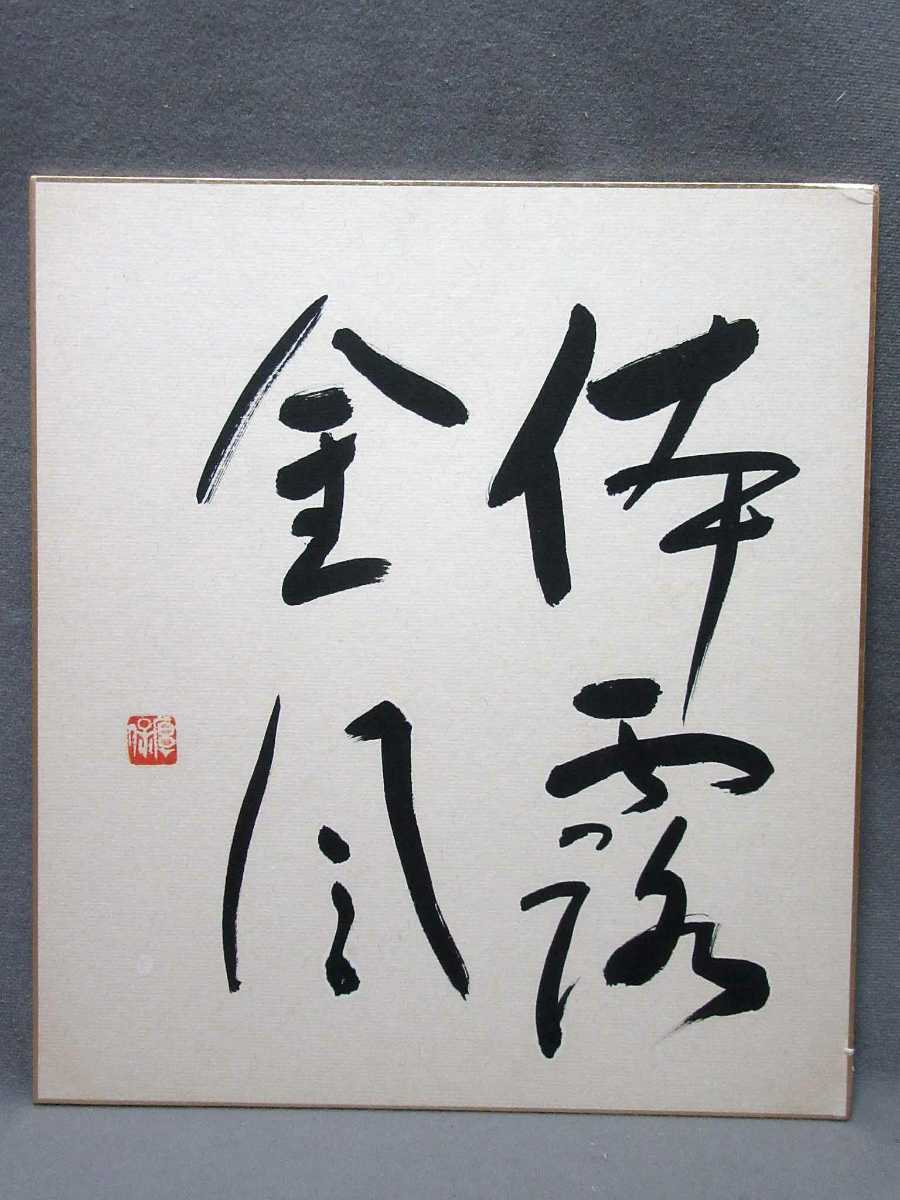 体露
金風